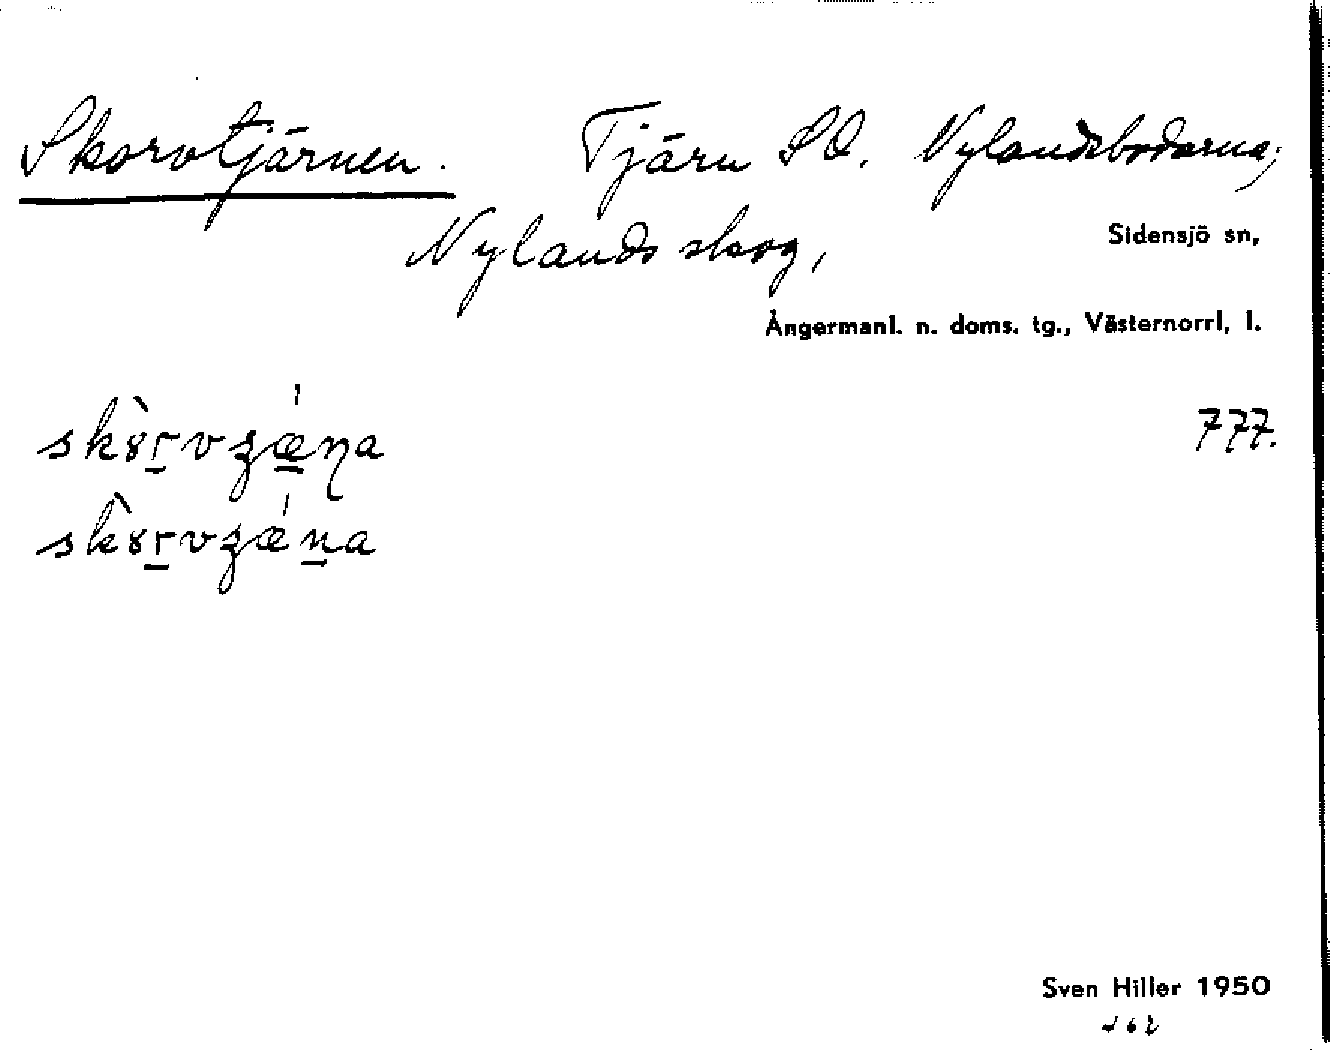 Skorvtjärnen. Tjärn SO. Nylandsbodarna,
Nylands skog,
Sidensjö sn,
Ångermanl. n. doms. tg., Västernorrl, l.
777.
Sven Hiller 1950